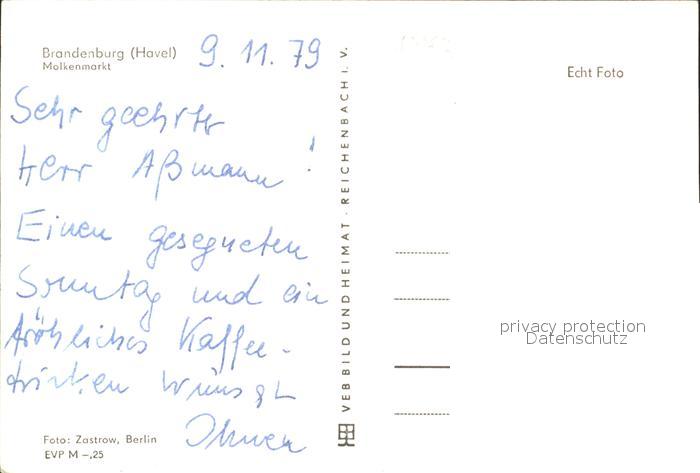 Brandenburg (Havel)
Molkenmarkt
9.11.79
Sehr geehrter
Herr Aßmann!
Einen gesegneten
Sonntag und ein
fröhliches Kaffee-
trinken wünscht
Ihnen
Foto: Zastrow, Berlin
EVP M –,25
VEB BILD UND HEIMAT · REICHENBACH I. V.
Echt Foto
privacy protection
Datenschutz